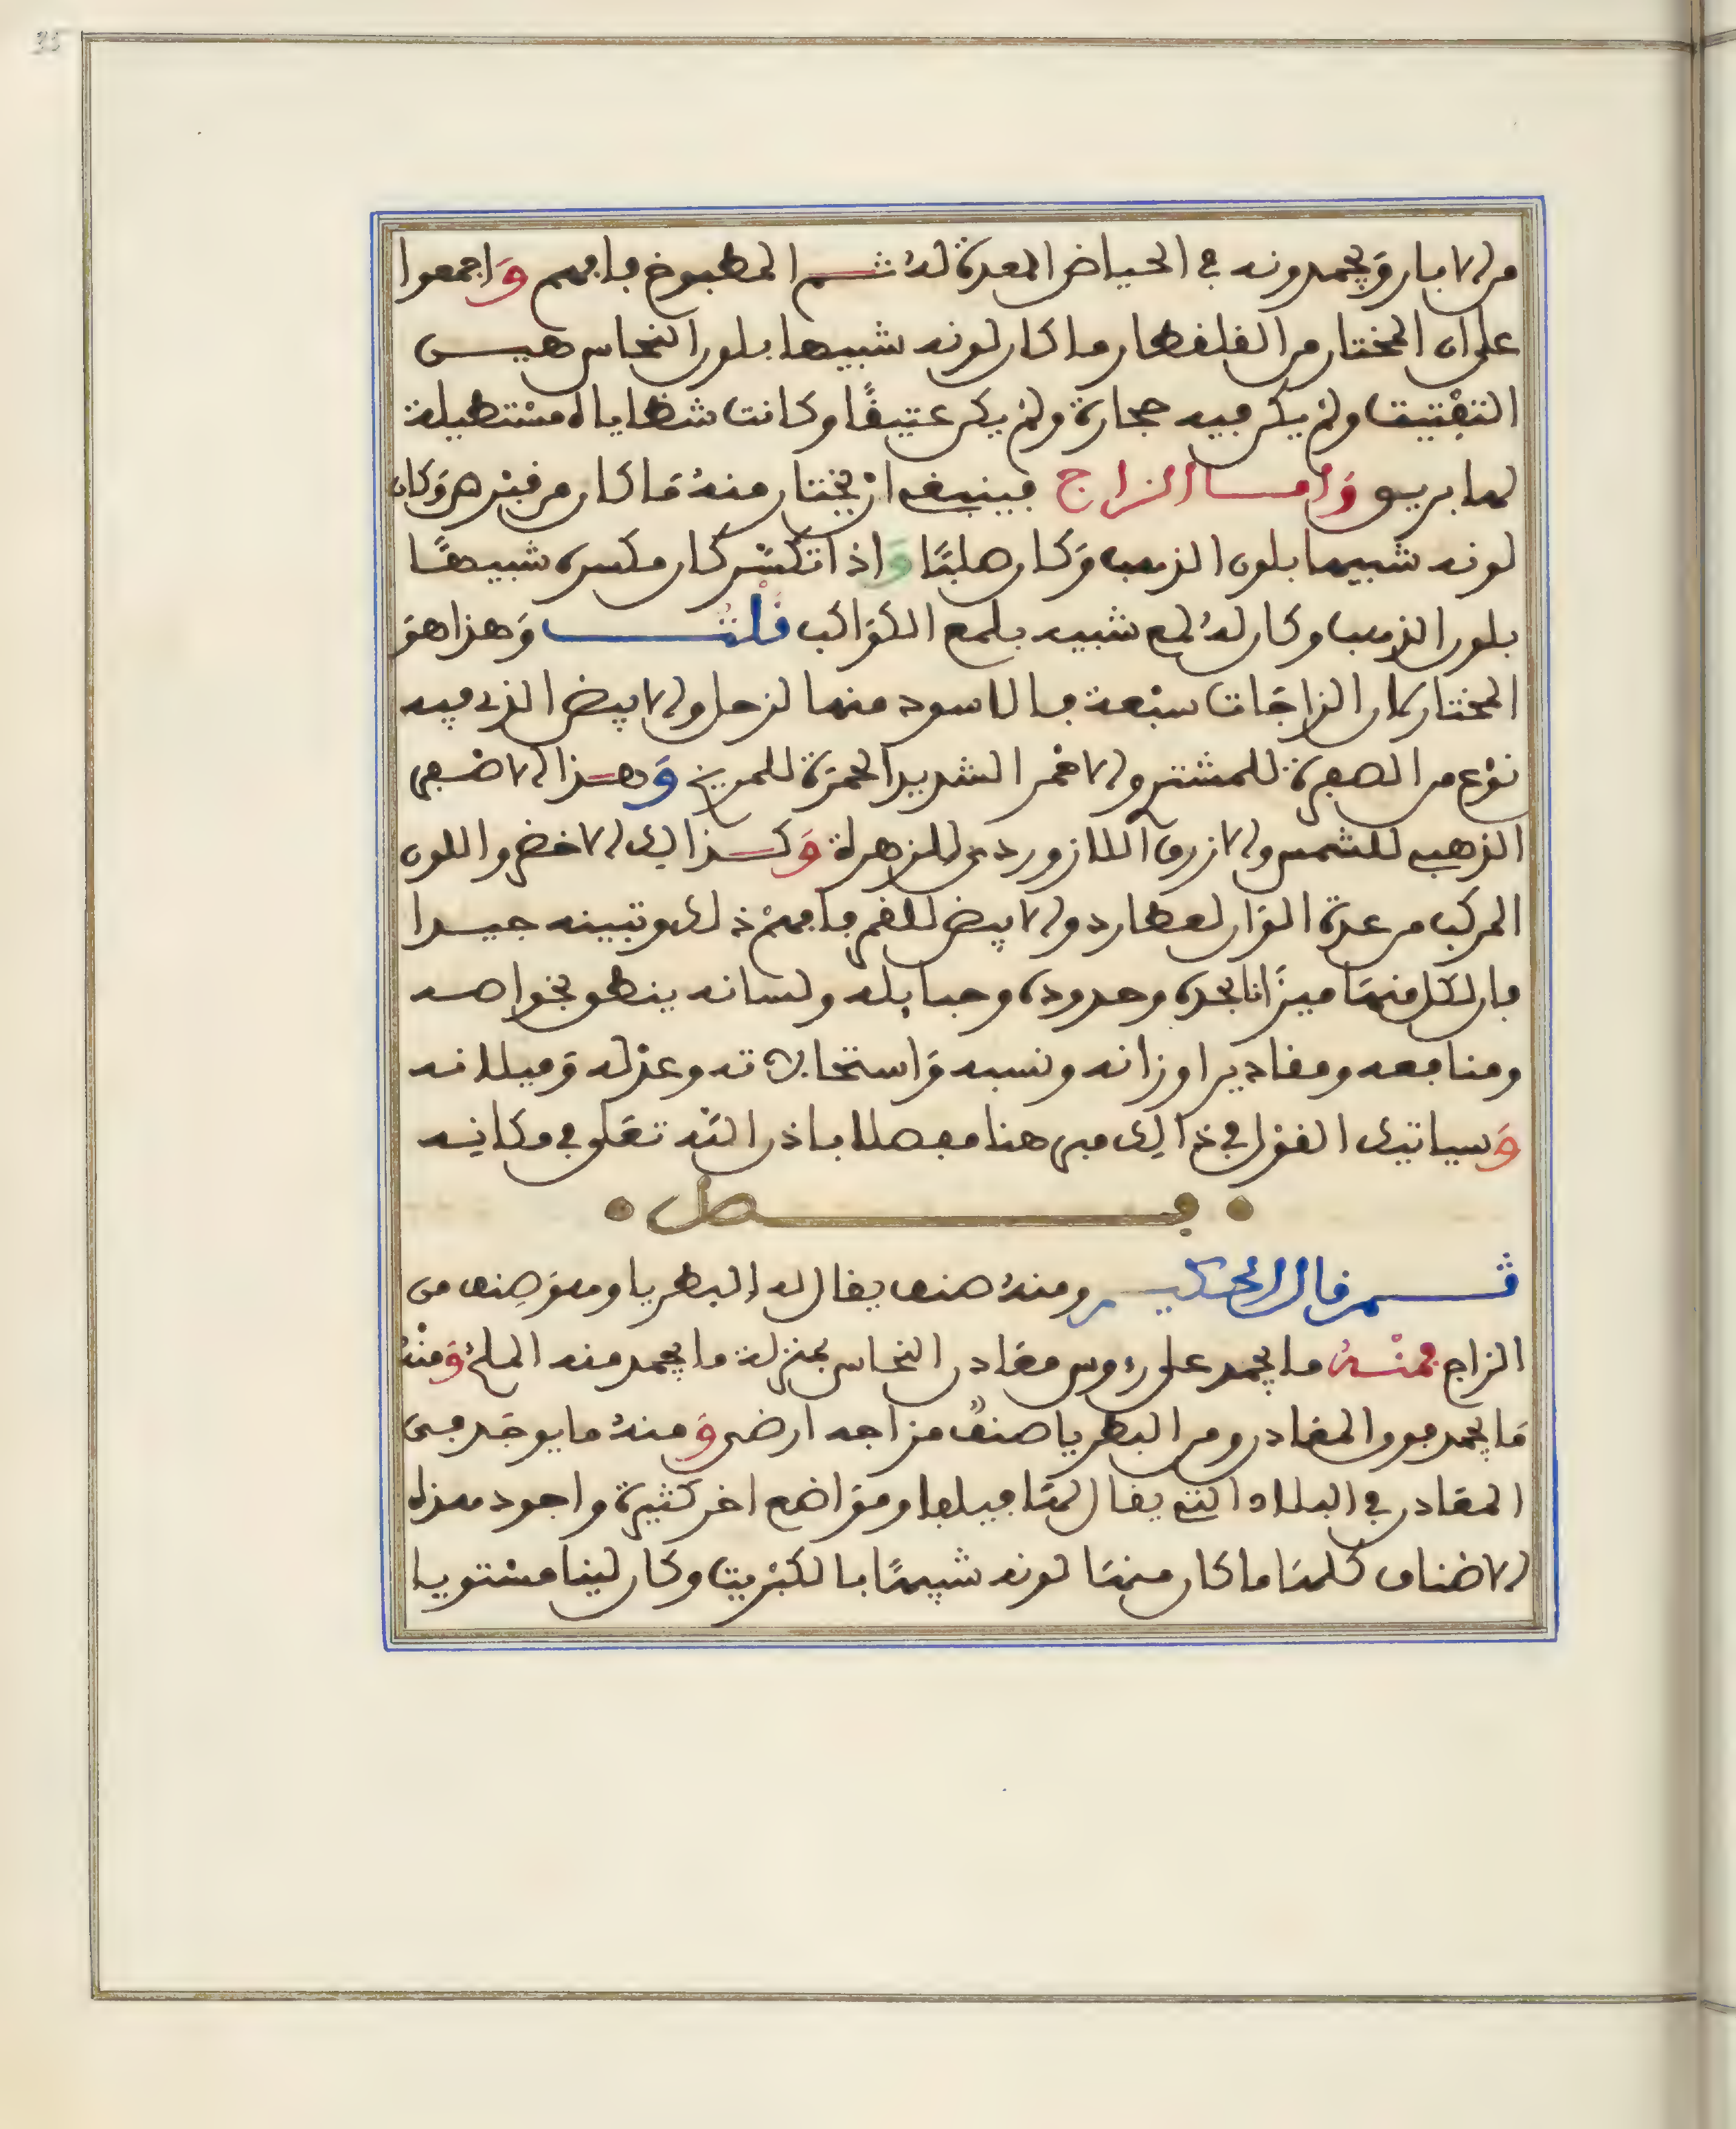 35
من الابار وَيجمدونه في الحياض المعدة لهُ ثم المطبوخ فافهم وَاجمعوا
على ان المختار من القلقطار ما كان لونه شبيها بلون النحاس هين
التفْتيت ولم يكن فيه حجارة ولم يكن عتيقًا وكانت شظاياه مسْتطيلة
لها بريق وَاما الزاج فينبغي انْ يختار منهُ مَا كان من قبْرص وَكان
لونه شبيها بلون الذهب وَكان صلبًا وَاذا تكسّر كان مكسره شبيهًا
بلون الذهب وكان لهُ لمع شبيه بلمع الكوَاكب قلْتُ وَهذا هوَ
المختار لان الزاجَات سبْعة فالاسود منها لزحل والابيض الذي فيه
نوْع من الصفرة للمشتري والاحْمر الشديد الحمرَة للمريخ وَهذا الاصْفر
الذهبي للشمس والازرق اللازوردي للزهرة وَكذالك الاخضر واللون
المركب من عدة الوَان لعطارد والابيض للقمر فافهمْ ذلك وتبينه جيدا
فان لكل منهَا ميزَانا بحده وحدوده وحبايله ولسانه ينطق بخواصه
ومنافعه ومقادير اوزانه ونسبه وَاستحالاته وعزْله وَميلانه
وَسياتيك القوْل في ذَالِك مبرهنا مفصلا باذن اللّه تعَلى في مكانِه
فصل
ثم قال الحكيم ومنهُ صنف يقال له البطريا وهوَ صِنف من
الزاج فمنْهُ ما يجمد على رءوس معَادن النحاس بمنزلة ما يجمد منه الملحُ وَمنْهُ
مَا يجمد فوق المعَادن ومن البطريا صنفٌ مزاجه ارضي وَمنهُ ما يوجَد في
المعَادن في البلاد التي يقال لهَا قيلقيا وموَاضع اخر كثيرة واجود هذه
الاصْناف كلهَا ما كان منهَا لونه شبيهًا بالكبْريت وكان لينا مسْتويا